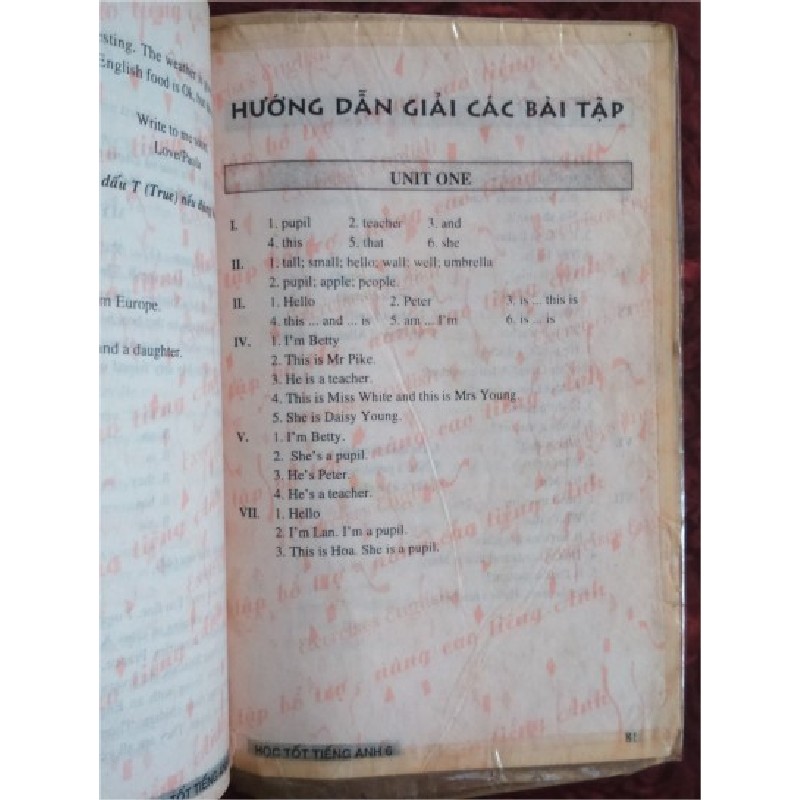 esting. The weather is
English food is Ok, but
Write to me soon
Love/Paula
dấu T (True) nếu đúng
m Europe.
and a daughter.
TỐT TIẾNG ANH
HƯỚNG DẪN GIẢI CÁC BÀI TẬP
UNIT ONE
I. 1. pupil 2. teacher 3. and
4. this 5. that 6. she
II. 1. tall; small; hello; wall; well; umbrella
2. pupil; apple; people.
II. 1. Hello 2. Peter 3. is ... this is
4. this ... and ... is 5. am ... I'm 6. is ... is
IV. 1. I'm Betty
2. This is Mr Pike.
3. He is a teacher.
4. This is Miss White and this is Mrs Young
5. She is Daisy Young.
V. 1. I'm Betty.
2. She's a pupil.
3. He's Peter.
4. He's a teacher.
VII. 1. Hello
2. I'm Lan. I'm a pupil.
3. This is Hoa. She is a pupil.
HỌC TỐT TIẾNG ANH 6